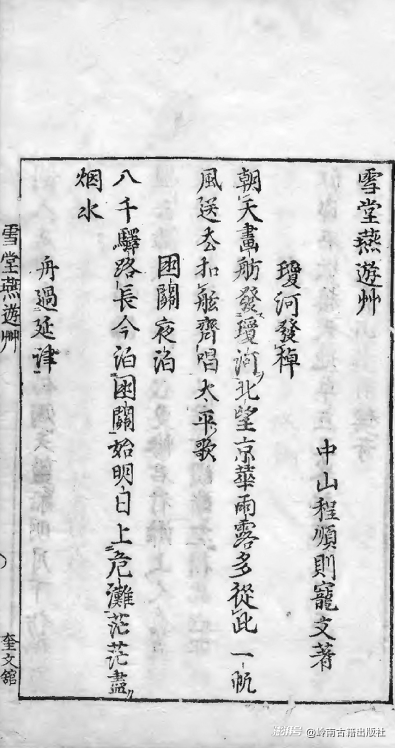 雪堂燕遊艸
中山程順則寵文著
瓊河發棹
朝天畫舫發瓊河北望京華雨露多從此一帆
風送厺扣舷齊唱太平歌
困關夜泊
八千驛路長今泊困關始明日上危灘茫茫盡
烟水
舟過延津
雪堂燕遊艸
奎文舘
澎湃号 @岭南古籍出版社